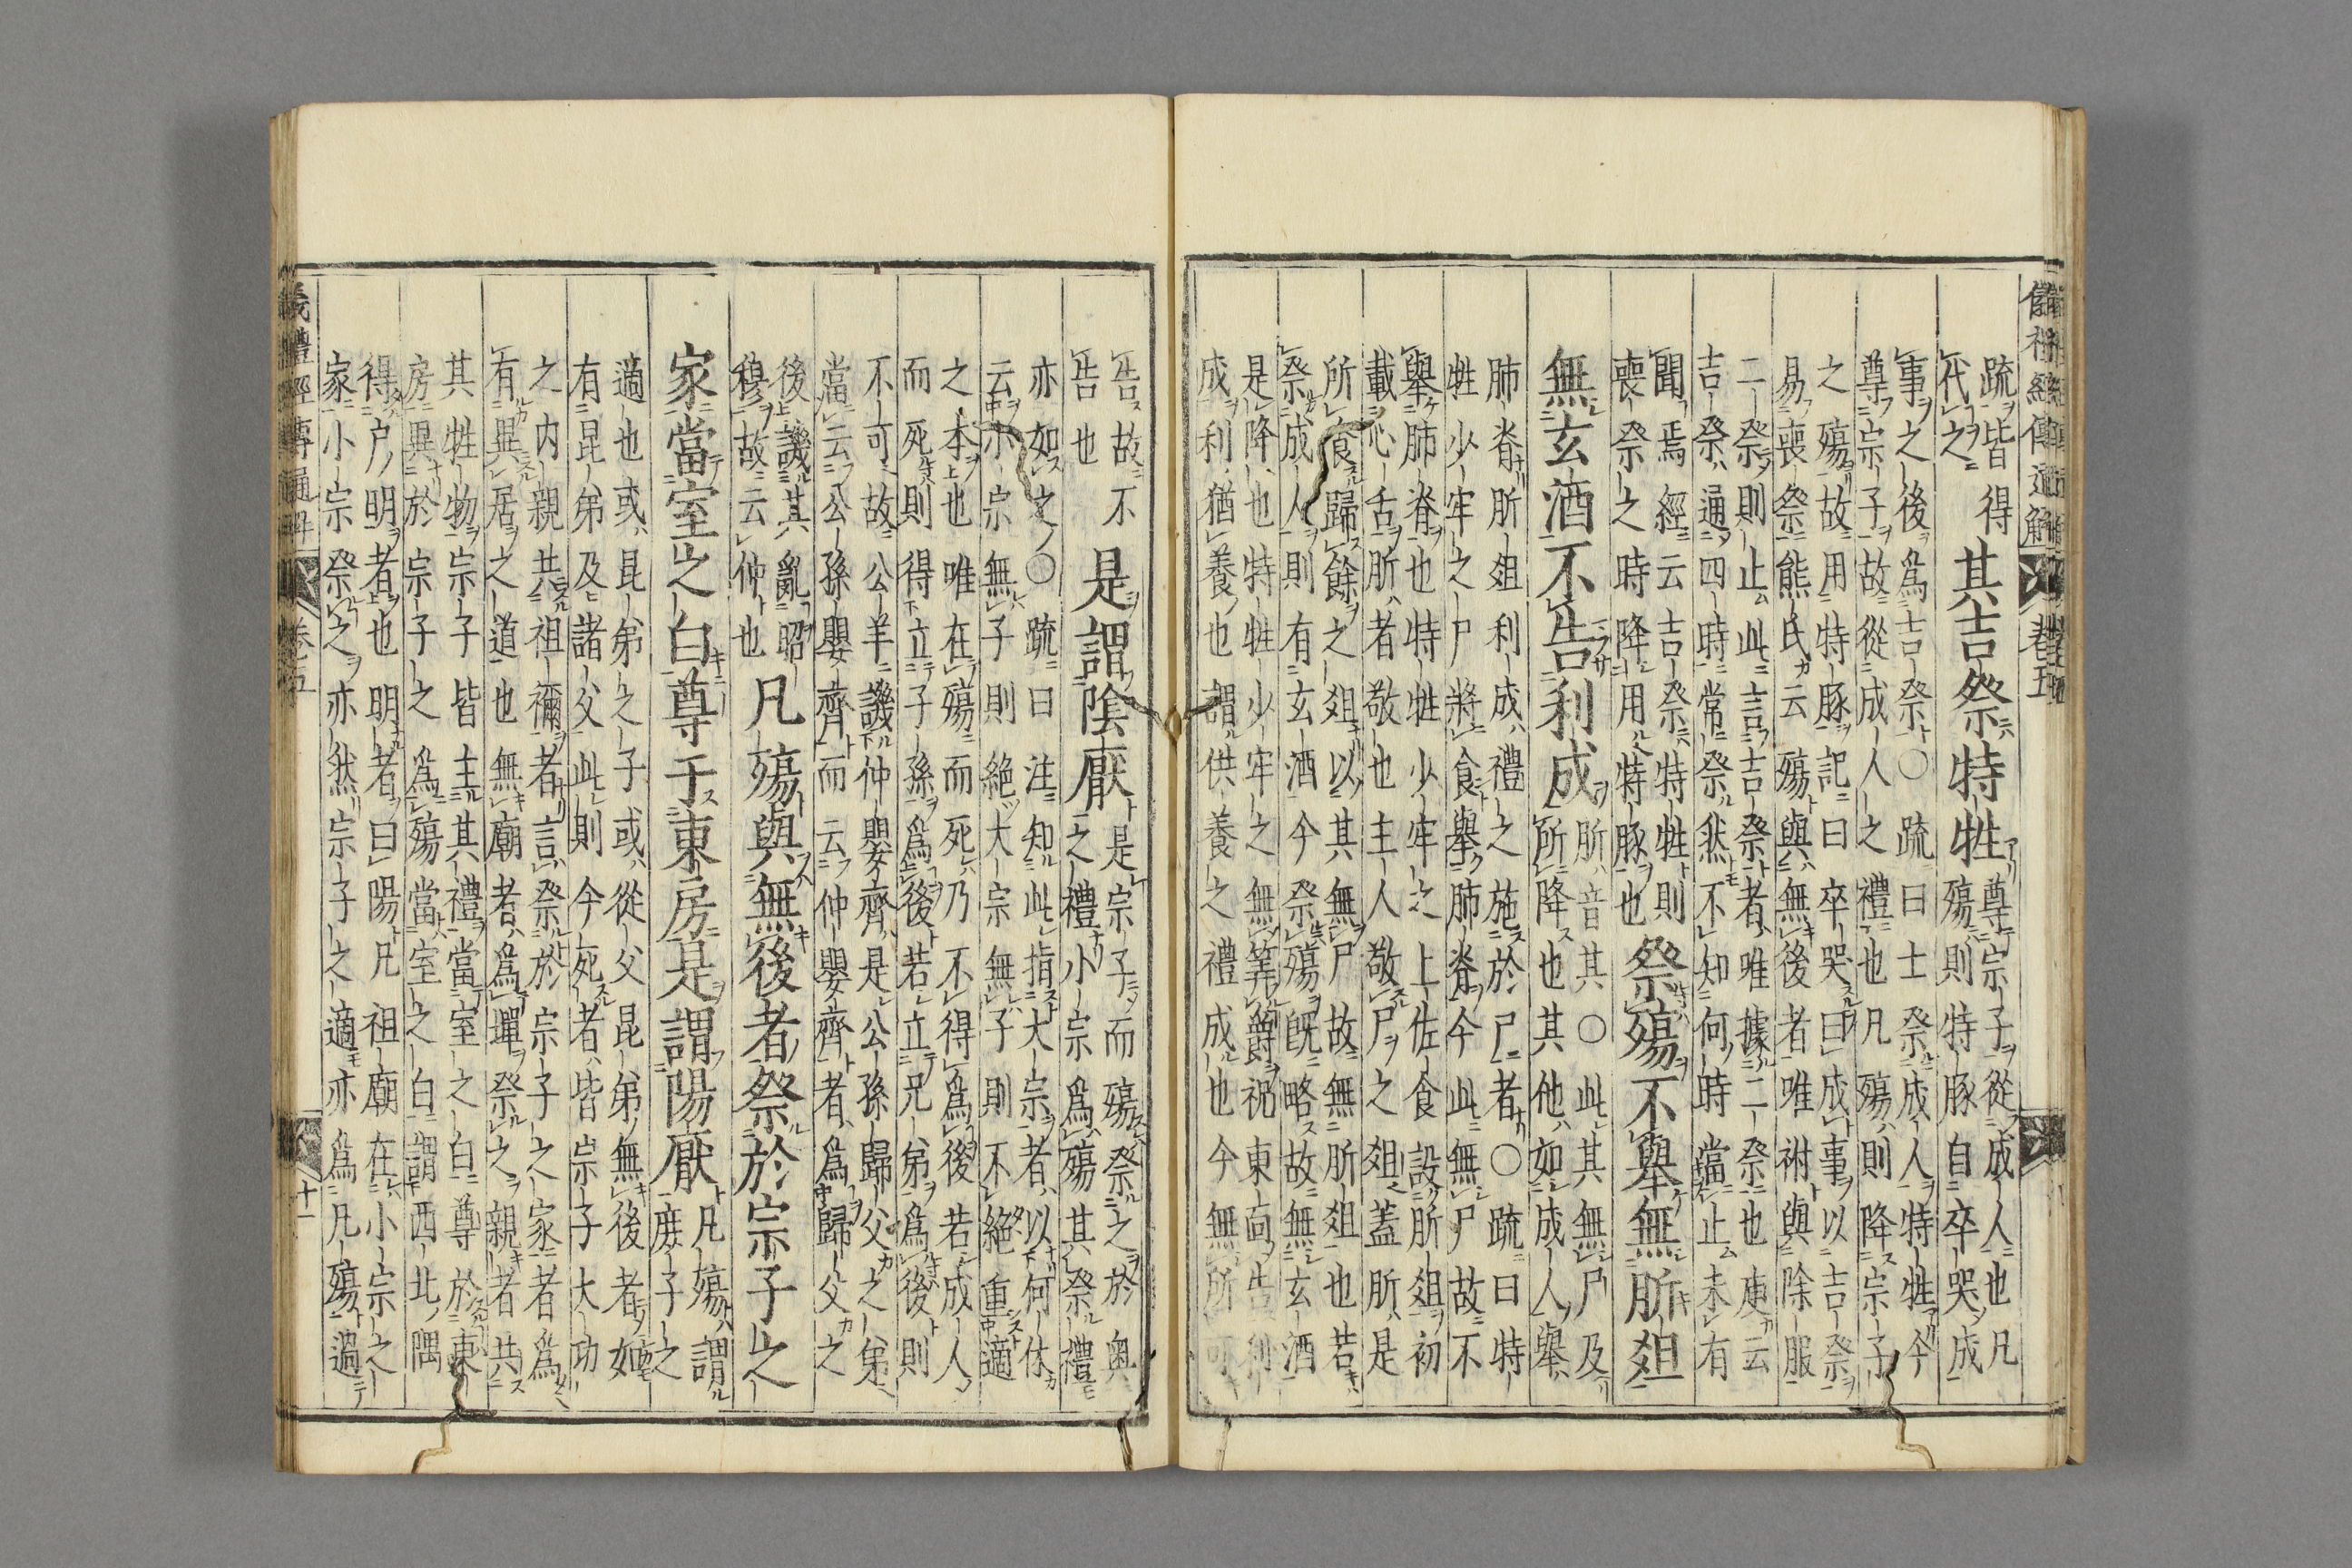 儀禮經傳通解 卷五
疏皆得
代之
其吉祭特牲
尊宗子從成人也凡
殤則特豚自卒哭成
事之後爲吉祭○疏曰士祭成人特牲今
尊宗子故從成人之禮也凡殤則降宗子
之殤故用特豚記曰卒哭曰成事以吉祭
易喪祭熊氏云殤與無後者唯祔與除服
二祭則止此言吉祭者唯據二祭也庾云
吉祭通四時常祭然不知何時當止未有
聞焉經云吉祭特牲則
喪祭之時降用特豚也
祭殤不舉無肵爼
無玄酒不告利成
肵音其○此其無尸及
所降也其他如成人舉
肺脊肵爼利成禮之施於尸者○疏曰特
牲少牢之尸將食舉肺脊今此無尸故不
舉肺脊也特牲少牢之上佐食設肵爼初
載心舌肵者敬也主人敬尸之爼蓋肵是
所食歸餘之爼以其無尸故無肵爼也若
祭成人則有玄酒今祭殤旣略故無玄酒
是降也特牲少牢之無筭爵祝東面告利
成利猶養也謂供養之禮成也今無所可
告故不
告也
是謂陰厭
是宗子而殤祭之於奥
之禮小宗爲殤其祭禮
亦如之○疏曰注知此指大宗者以何休
云小宗無子則絶大宗無子則不絶重適
之本也唯在殤而死乃不得爲後若成人
而死則得立子孫爲後若立兄弟爲後則
不可故公羊譏仲嬰齊是公孫歸父之弟
當云公孫嬰齊而云仲嬰齊者爲歸父之
後譏其亂昭
穆故云仲也
凡殤與無後者祭於宗子之
家當室之白尊于東房是謂陽厭
凡殤謂
庶子之
適也或昆弟之子或從父昆弟無後者如
有昆弟及諸父此則今死者皆宗子大功
之内親共祖禰者言祭於宗子之家者爲
有異居之道也無廟者爲墠祭之親者共
其牲物宗子皆主其禮當室之白尊於東
房異於宗子之爲殤當室之白謂西北隅
得户明者也明者曰陽凡祖廟在小宗之
家小宗祭之亦然宗子之適亦爲凡殤過
儀禮經傳通解 卷五 十一